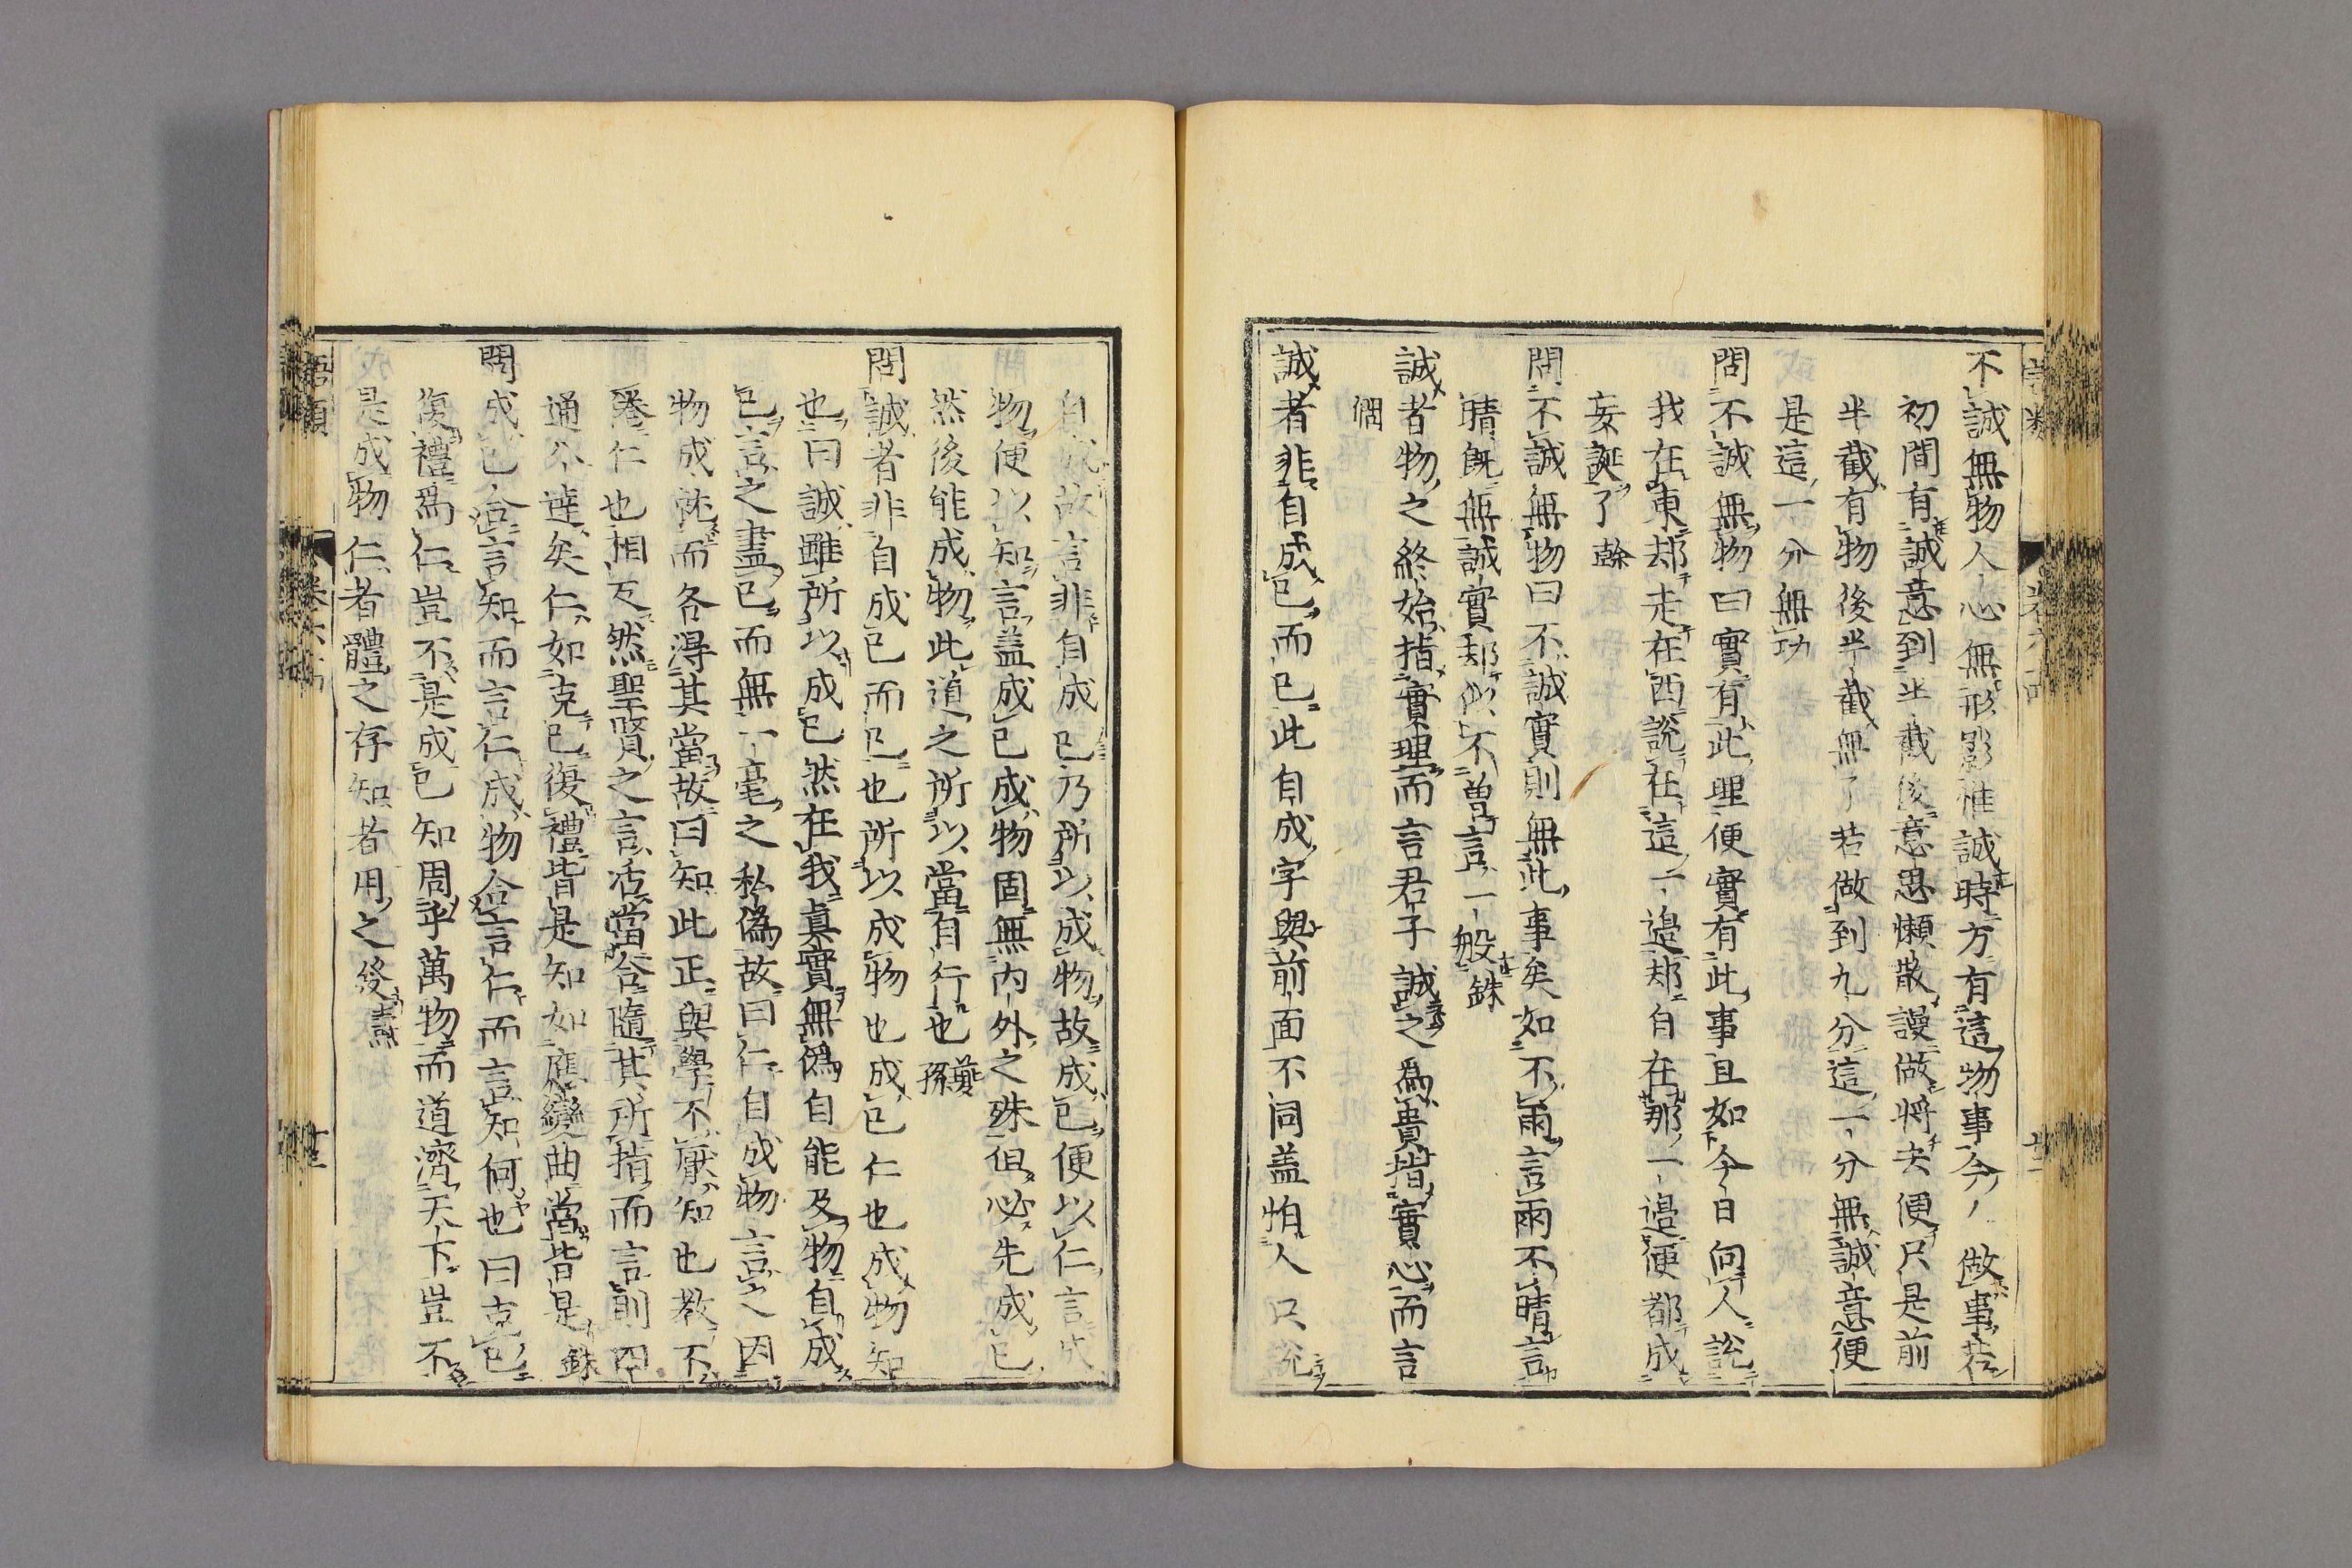 不誠無物人心無形影惟誠時方有這物事今人做事若
初間有誠意到半截後意思懶散謾做將去便只是前
半截有物後半截無了若做到九分這一分無誠意便
是這一分無功
問不誠無物曰實有此理便實有此事且如今日向人說
我在東却走在西說在這一邊却自在那一邊便都成
妄誕了
問不誠無物曰不誠實則無此事矣如不雨言雨不晴言
晴既無誠實却似不曾言一般銖
誠者物之終始指實理而言君子誠之爲貴指實心而言
僩
誠者非自成己而已此自成字與前面不同盖怕人只說
自成故言非自成己乃所以成物故成己便以仁言成
物便以知言盖成己成物固無内外之殊但必先成己
然後能成物此道之所以當自行也
問誠者非自成己而已也所以成物也成己仁也成物知
也曰誠雖所以成己然在我真實無僞自能及物自成
己言之盡己而無一毫之私僞故曰仁自成物言之因
物成就而各得其當故曰知此正與學不厭知也教不
倦仁也相反然聖賢之言活當各隨其所指而言則四
通八達矣仁如克己復禮皆是知如應變曲當皆是銖
問成己合言知而言仁成物合言仁而言知何也曰克己
復禮爲仁豈不是成己知周乎萬物而道濟天下豈不
是成物仁者體之存知者用之發燾
語類